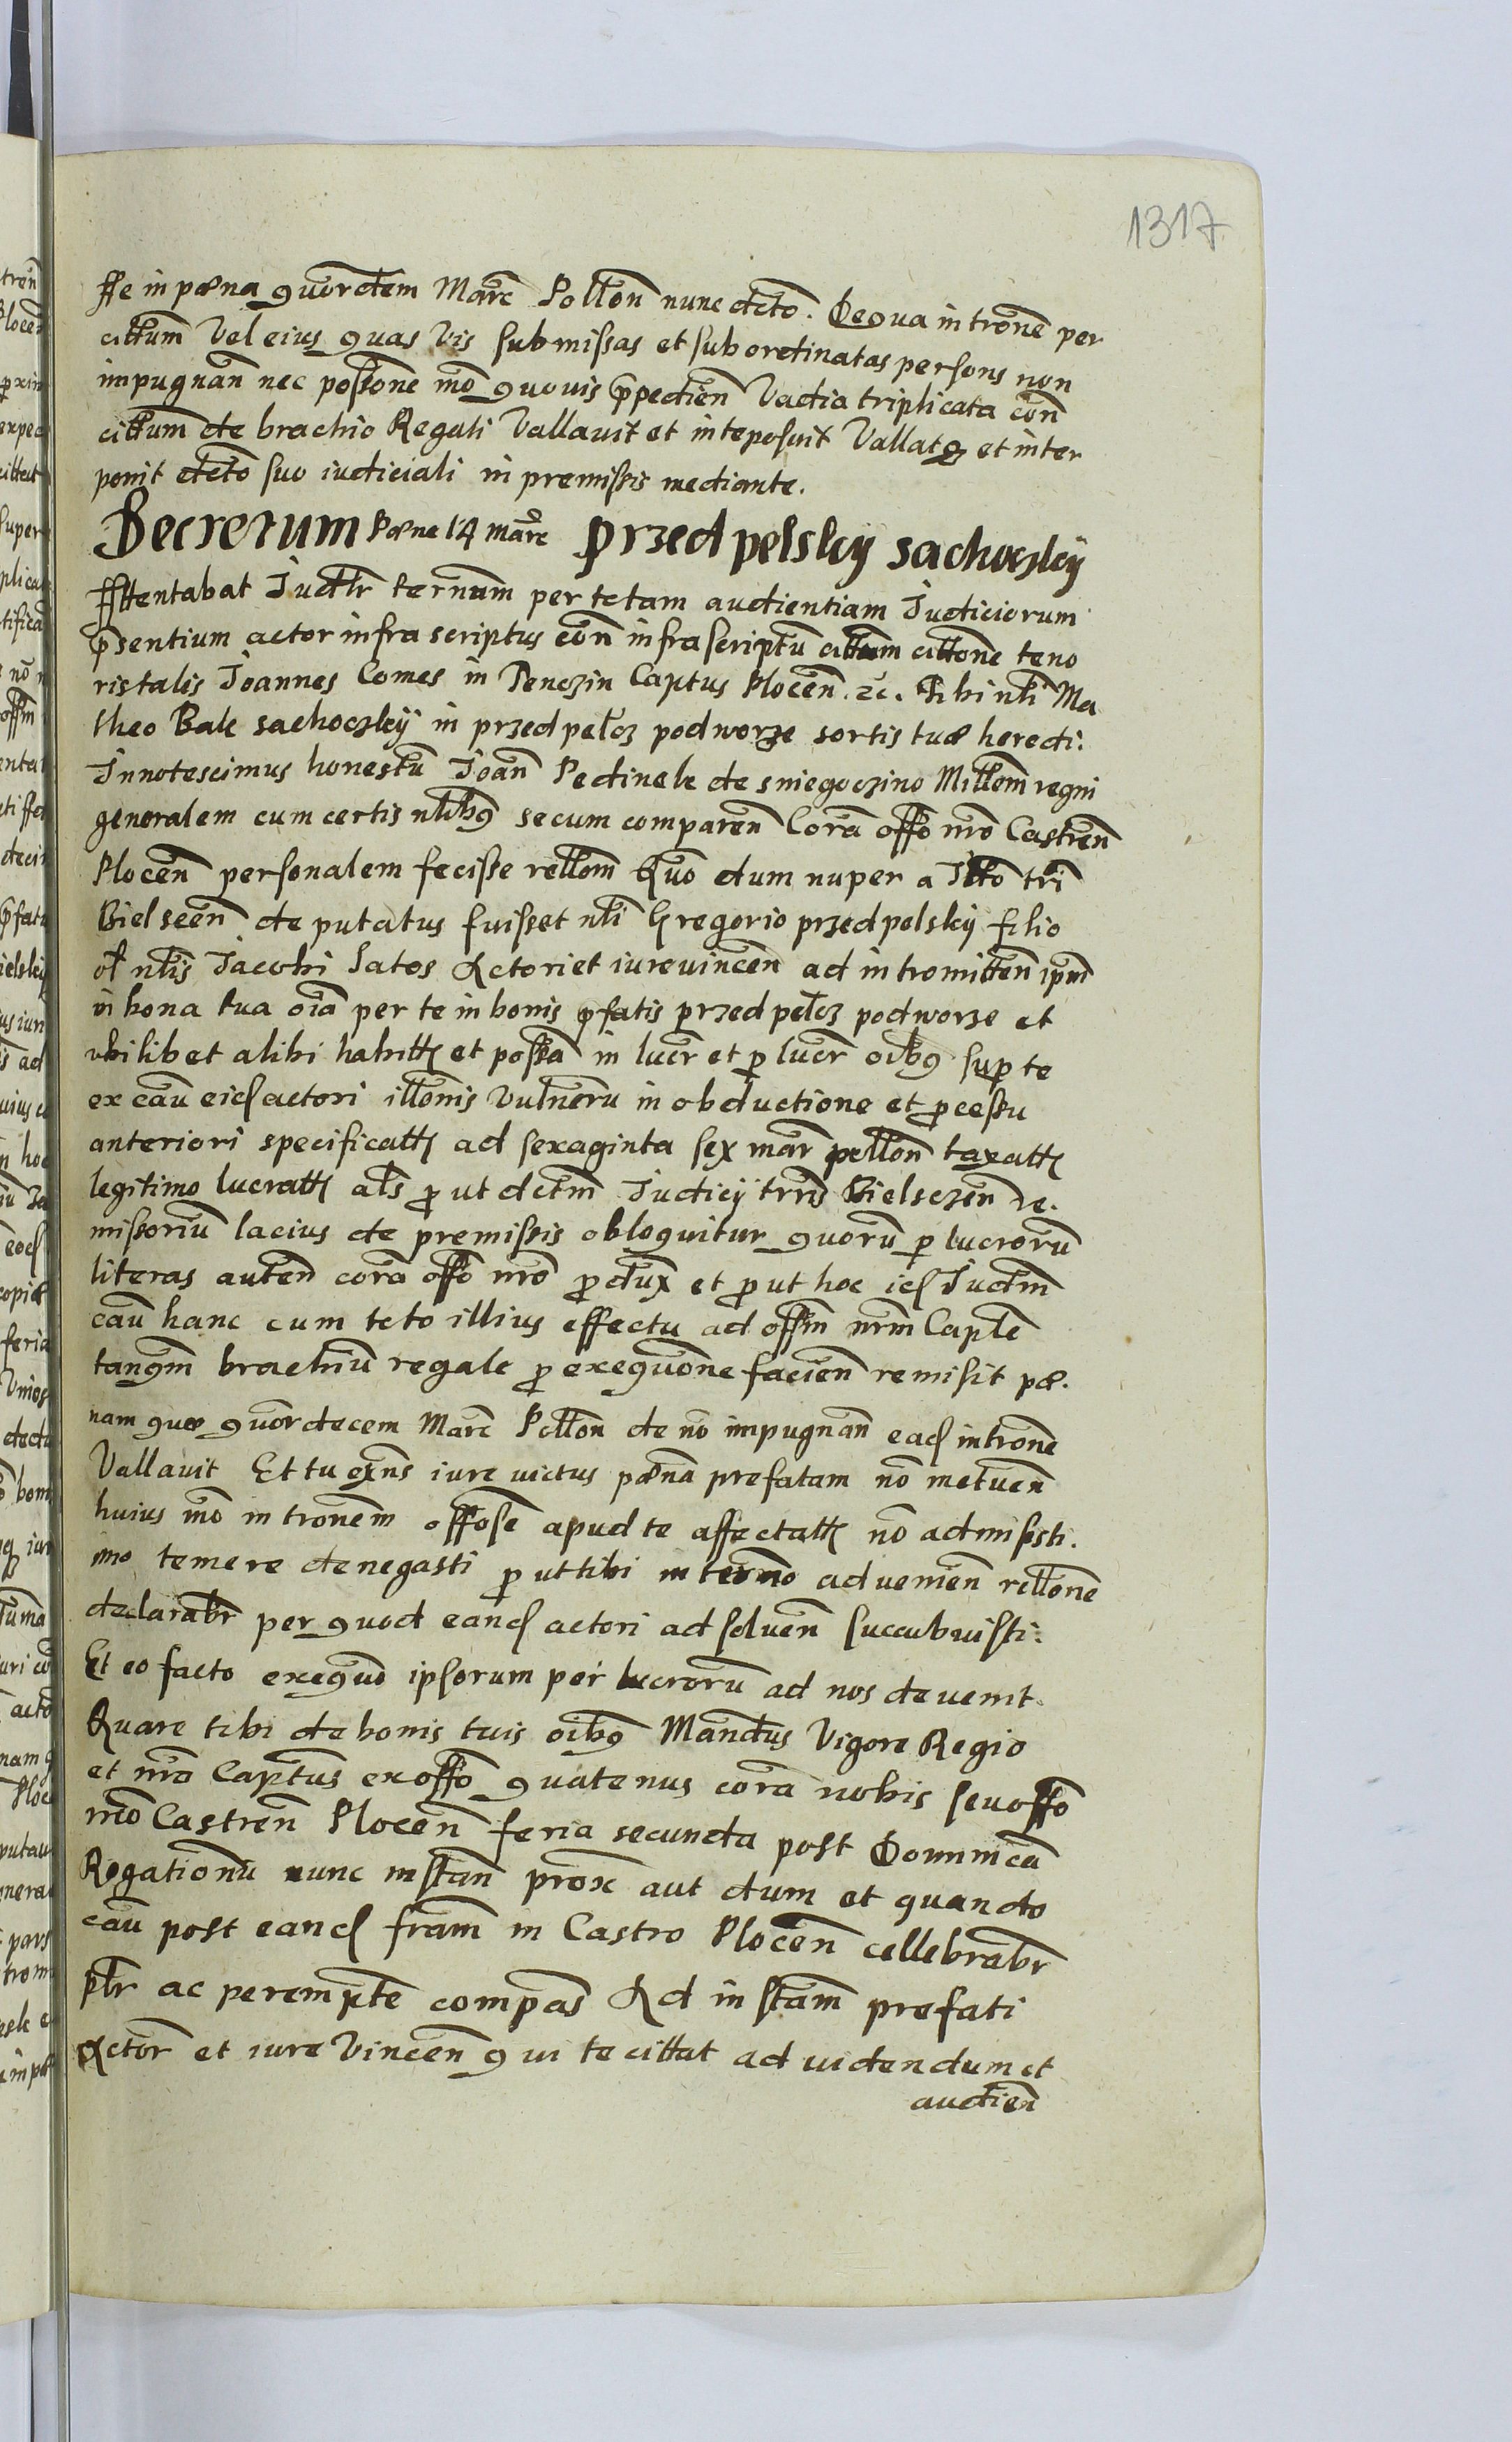 1317
sse in pœna quordem Marc Pollon nunc dcto. De qua introne per
cittum vel eius quas vis submissas et subordinatas persons non
impugnan nec possone mo quovis ppedien Vadia triplicata con
cittum de brachio Regali Vallavit et inteposuit Vallatq et inter
ponit dcto suo iudiciali in premissis mediante.
Decretum Pœne 14 marc Przedpelsky sachoczky
Attentabat Judlr ternum per totam audientiam Judiciorum
psentium actor infra scriptus con infrascriptu cittum cittone teno
ris talis Joannes Comes in Tenczin Captus Plocen. zc. Tibi nli Ma
theo Bak sachoczky in przedpelcz podworze sortis tuæ heredi.
Innotescimus honestu Joan Pedinek de sniegoczino Millem regni
generalem cum certis nlibq secum comparen Cora offo nro Castren
Plocen personalem fecisse rellom Quo dum nuper a Jtto tri
Bielscen deputatus fuisset nli Gregorio przedpelsky filio
ol nlis Jacobi Satos Actori et iurevincen ad intromitten ipm
in bona tua oia per te in bonis pfatis przedpelcz podworze et
ubilibet alibi habitt et possa in lucr et p lucr oibq sup te
ex cau eid actori illonis vulneru in obductione et pcessu
anteriori specificatt ad sexaginta sex mar pollon taxatt
legitimo lucratt als put dctm Judicy trris Bielsczen re.
missoriu lacius de premissis obloquitur quoru p lucroru
literas auten cora offo nro pdux et put hoc id Judm
cau hanc cum toto illius effectu ad offm nrm Caple
tanqm brachiu regale p exequone facien remisit pœ.
nam quæ quordecem Marc Pollon de no impugnan ead introne
Vallavit Et tu exns iure victus pœna prefatam no metuen
huius mo intronem offose apud te affectatt no admisisti.
imo temere denegasti put tibi in termo advenien rellone
declarabr per quod eand actori ad solven succubuisti.
Et eo facto exequo ipsorum per lucroru ad nos devenit.
Quare tibi de bonis tuis oibq Mandus Vigore Regio
et nro Captus ex offo quatenus cora nobis seu offo
nro Castren Plocen feria secunda post Dominica
Rogationu nunc instan prox aut dum et quando
cau post eand fram in Castro Plocen cellebrabr
plr ac perempte compas Ad instam prefati
Actor et iure Vincen qui te cittat ad videndum et
audien